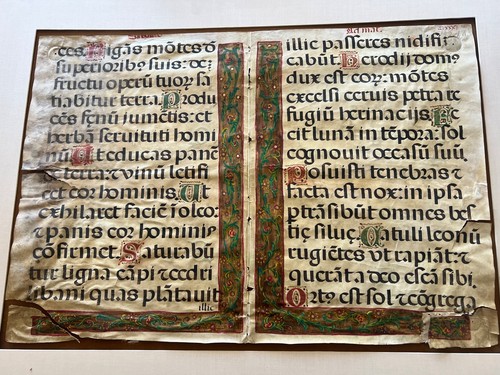 tes Rigas mõtes ð
superioribꝰ suis: ðꝫ
fructu operũ tuoꝝ sa
tiabitur terra. Produ
cẽs fenũ iumẽtis: et
herbã seruituti homi
nũ Ut educas panẽ
ðe terra: ⁊ vinũ letifi
cet cor hominis. Ut
exhilaret faciẽ ĩ oleo:
⁊ panis cor hominis
cõfirmet. Saturabũ
tur ligna cãpi ⁊ cedri
libani quas plãtauit
illic
Ad mat.
illic passeres nidifi
cabũt. Herodij dom⁹
dux est eoꝝ: mõtes
excelsi ceruis petra re
fugiũ herinacijs. Fe
cit lunã in tẽpora: sol
cognouit occasũ suũ.
Posuisti tenebras ⁊
facta est nox: in ipsa
ptrãsibũt omnes bes
tię silue. Catuli leonũ
rugiẽtes vt rapiãt: ⁊
querãt a deo escã sibi.
Ortꝰ est sol ⁊ cõgrega